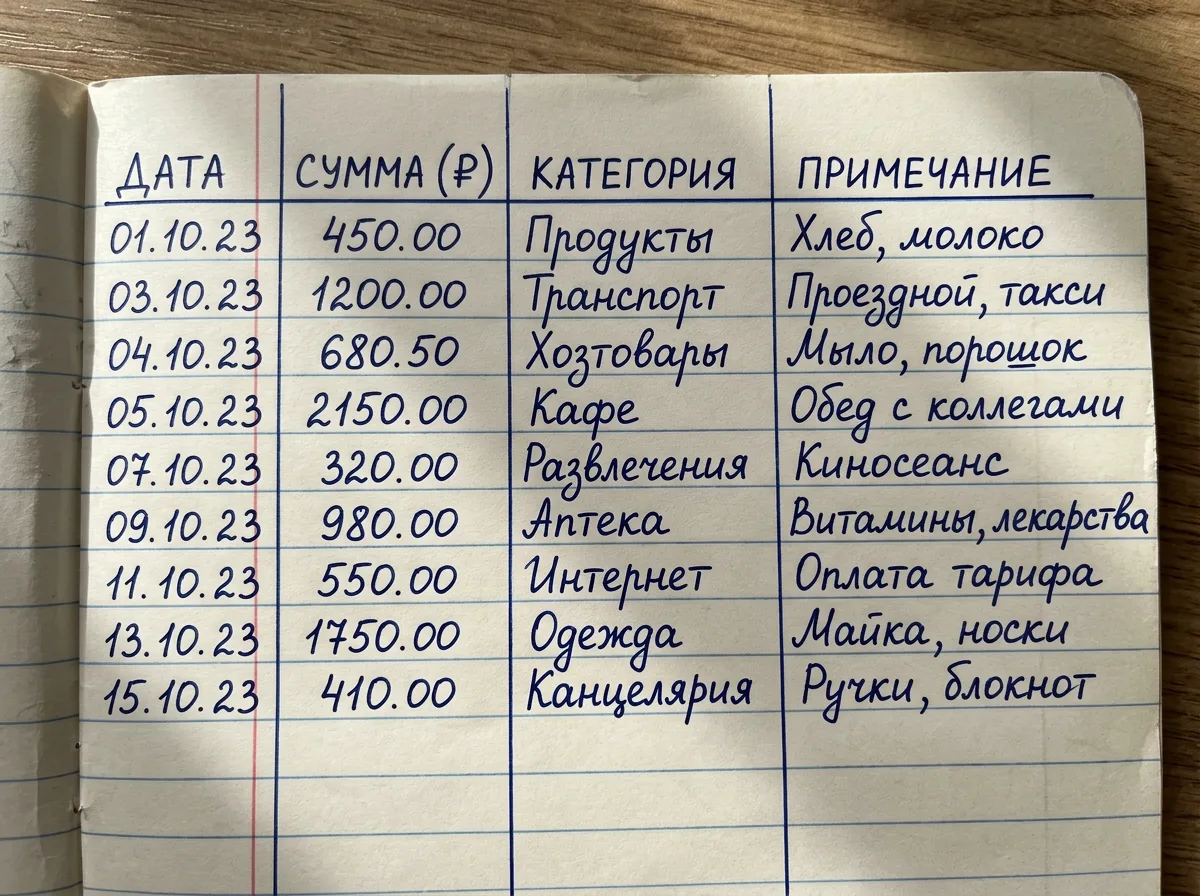 ДАТА СУММА (₽) КАТЕГОРИЯ ПРИМЕЧАНИЕ
01.10.23 450.00 Продукты Хлеб, молоко
03.10.23 1200.00 Транспорт Проездной, такси
04.10.23 680.50 Хозтовары Мыло, порошок
05.10.23 2150.00 Кафе Обед с коллегами
07.10.23 320.00 Развлечения Киносеанс
09.10.23 980.00 Аптека Витамины, лекарства
11.10.23 550.00 Интернет Оплата тарифа
13.10.23 1750.00 Одежда Майка, носки
15.10.23 410.00 Канцелярия Ручки, блокнот